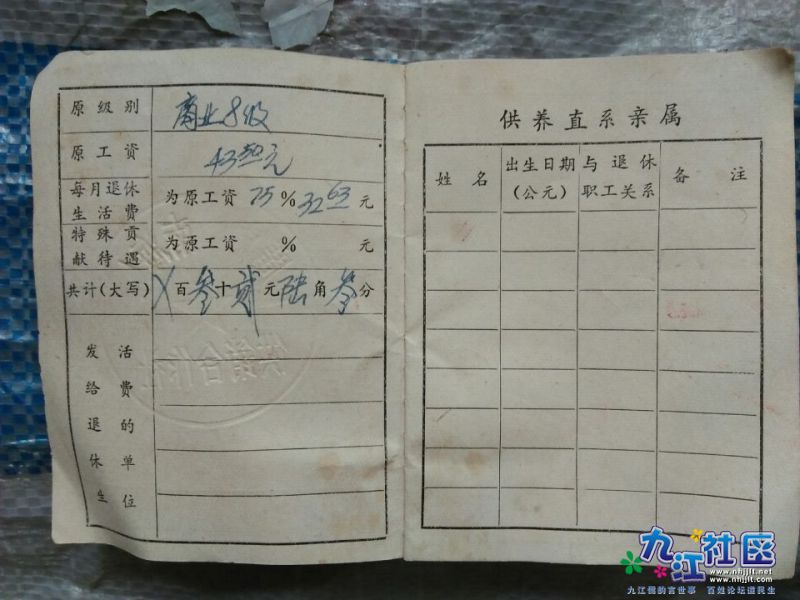 原级别 商业8级
原工资 43.50元
每月退休生活费 为原工资75% 32.63元
特殊贡献待遇 为原工资 % 元
共计(大写) ㄨ百叁十贰元陆角叁分
发给退休生活费的单位
供养直系亲属
姓名 出生日期(公元) 与退休职工关系 备注
九江社区
www.nhjjlt.net
www.nhjjlt.com
九江儒的言世事 百姓论坛道民生